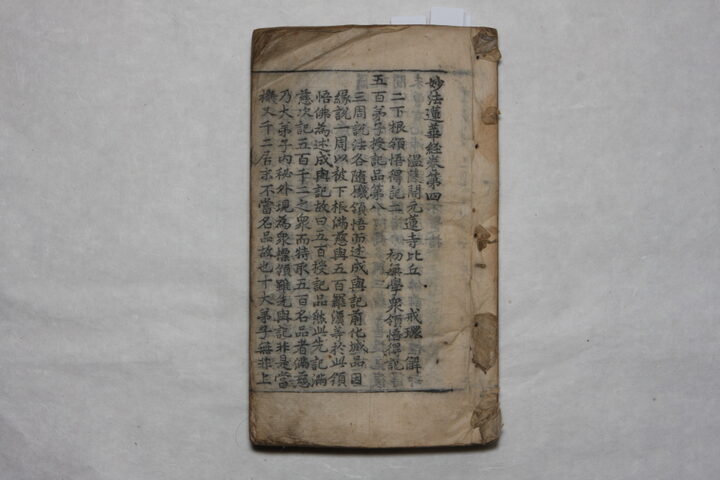 妙法蓮華經卷第四
溫陵開元蓮寺比丘 戒環 解
二下根領悟得記二 初無學衆領悟得記
五百弟子授記品第八
三周說法各隨機領悟而述成與記前化城品因
緣說一周以被下根滿慈與五百羅漢等於此領
悟佛為述成與記故曰五百授記品然此先記滿
慈次記五百千二之衆而特取五百名品者滿慈
乃大弟子內秘外現為衆標領雖先與記非是當
機又千二居末不當名品故也十大弟子無非上